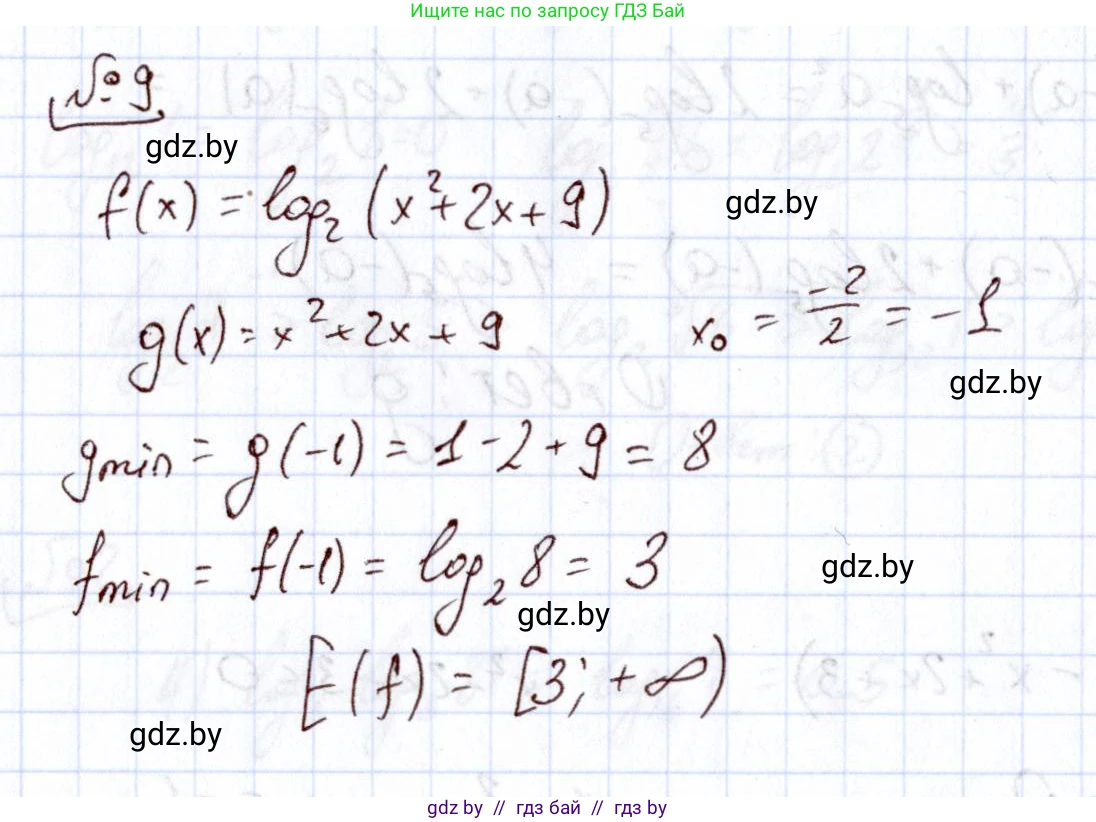 Ищите нас по запросу ГДЗ Бай
№9
gdz.by
f(x) = log₂(x²+2x+9)
gdz.by
g(x) = x²+2x+9 x₀ = -2/2 = -1
gdz.by
gmin = g(-1) = 1-2+9 = 8
fmin = f(-1) = log₂8 = 3
gdz.by
gdz.by
E(f) = [3; +∞)
gdz.by
gdz by // гдз бай // гдз by